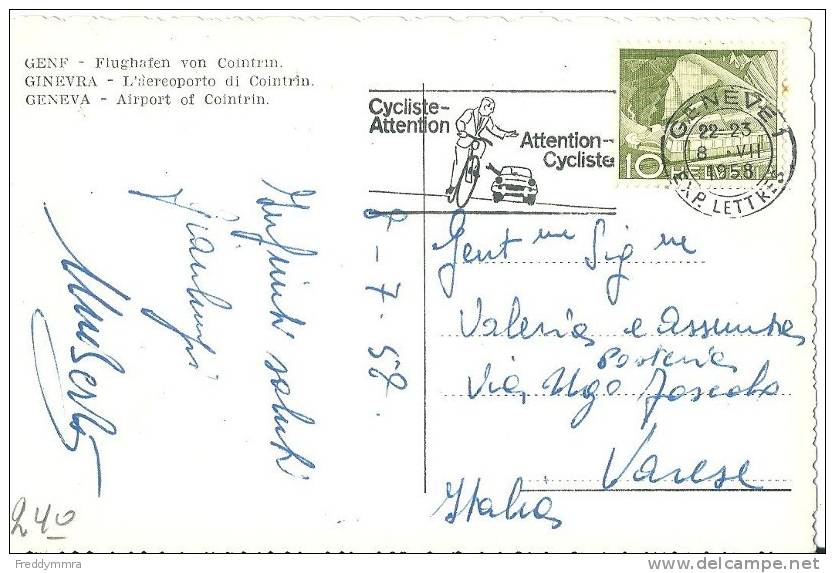 GENF - Flughafen von Cointrin.
GINEVRA - L'aereoporto di Cointrin.
GENEVA - Airport of Cointrin.
Cycliste-
Attention
Attention-
Cycliste
GENÈVE 1
22-23
8 VII
1958
EXP. LETTRES
10 HELVETIA
Infiniti saluti
Gianluigi
Umberto
8-7-58.
Gent me Sig ne
Valeria e Assunta
Posteria
Via Ugo Foscolo
Varese
Italia
240
Freddymmra
www.delcampe.net